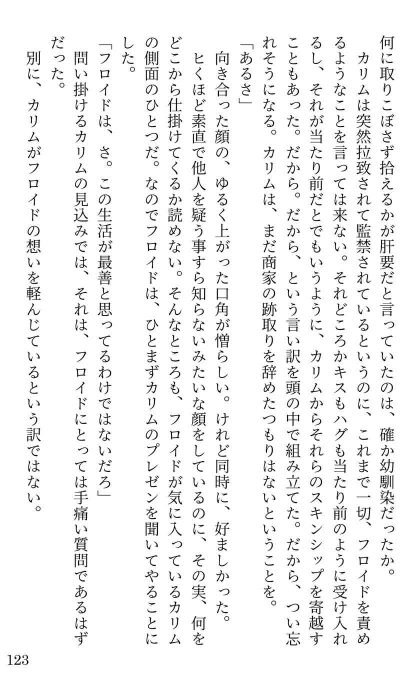 何に取りこぼさず拾えるかが肝要だと言っていたのは、確か幼馴染だったか。
カリムは突然拉致されて監禁されているというのに、これまで一切、フロイドを責め
るようなことを言っては来ない。それどころかキスもハグも当たり前のように受け入れ
るし、それが当たり前だとでもいうように、カリムからそれらのスキンシップを寄越す
こともあった。だから。だから、という言い訳を頭の中で組み立てた。だから、つい忘
れそうになる。カリムは、まだ商家の跡取りを辞めたつもりはないということを。
「あるさ」
向き合った顔の、ゆるく上がった口角が憎らしい。けれど同時に、好ましかった。
ひとくほど素直で他人を疑う事すら知らないみたいな顔をしているのに、その実、何を
どこから仕掛けてくるか読めない。そんなところも、フロイドが気に入っているカリム
の側面のひとつだ。なのでフロイドは、ひとまずカリムのプレゼンを聞いてやることに
した。
「フロイドは、さ。この生活が最善と思ってるわけではないだろ」
問い掛けるカリムの見込みでは、それは、フロイドにとっては手痛い質問であるはず
だった。
別に、カリムがフロイドの想いを軽んじているという訳ではない。
123